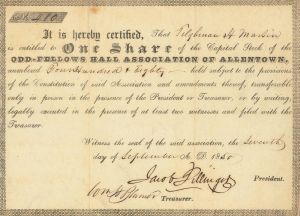 It is hereby certified, That Tilghman H Martin
is entitled to One Share of the Capital Stock of the
ODD-FELLOWS HALL ASSOCIATION OF ALLENTOWN,
numbered Four Hundred & Eighty held subject to the provisions
of the Constitution of said Association and amendments thereof, transferable
only in person in the presence of the President or Treasurer, or by writing,
legally executed in the presence of at least two witnesses and filed with the
Treasurer.
Witness the seal of the said association, the Seventh
day of September A. D. 18
Jacob Dillinger President.
Treasurer.